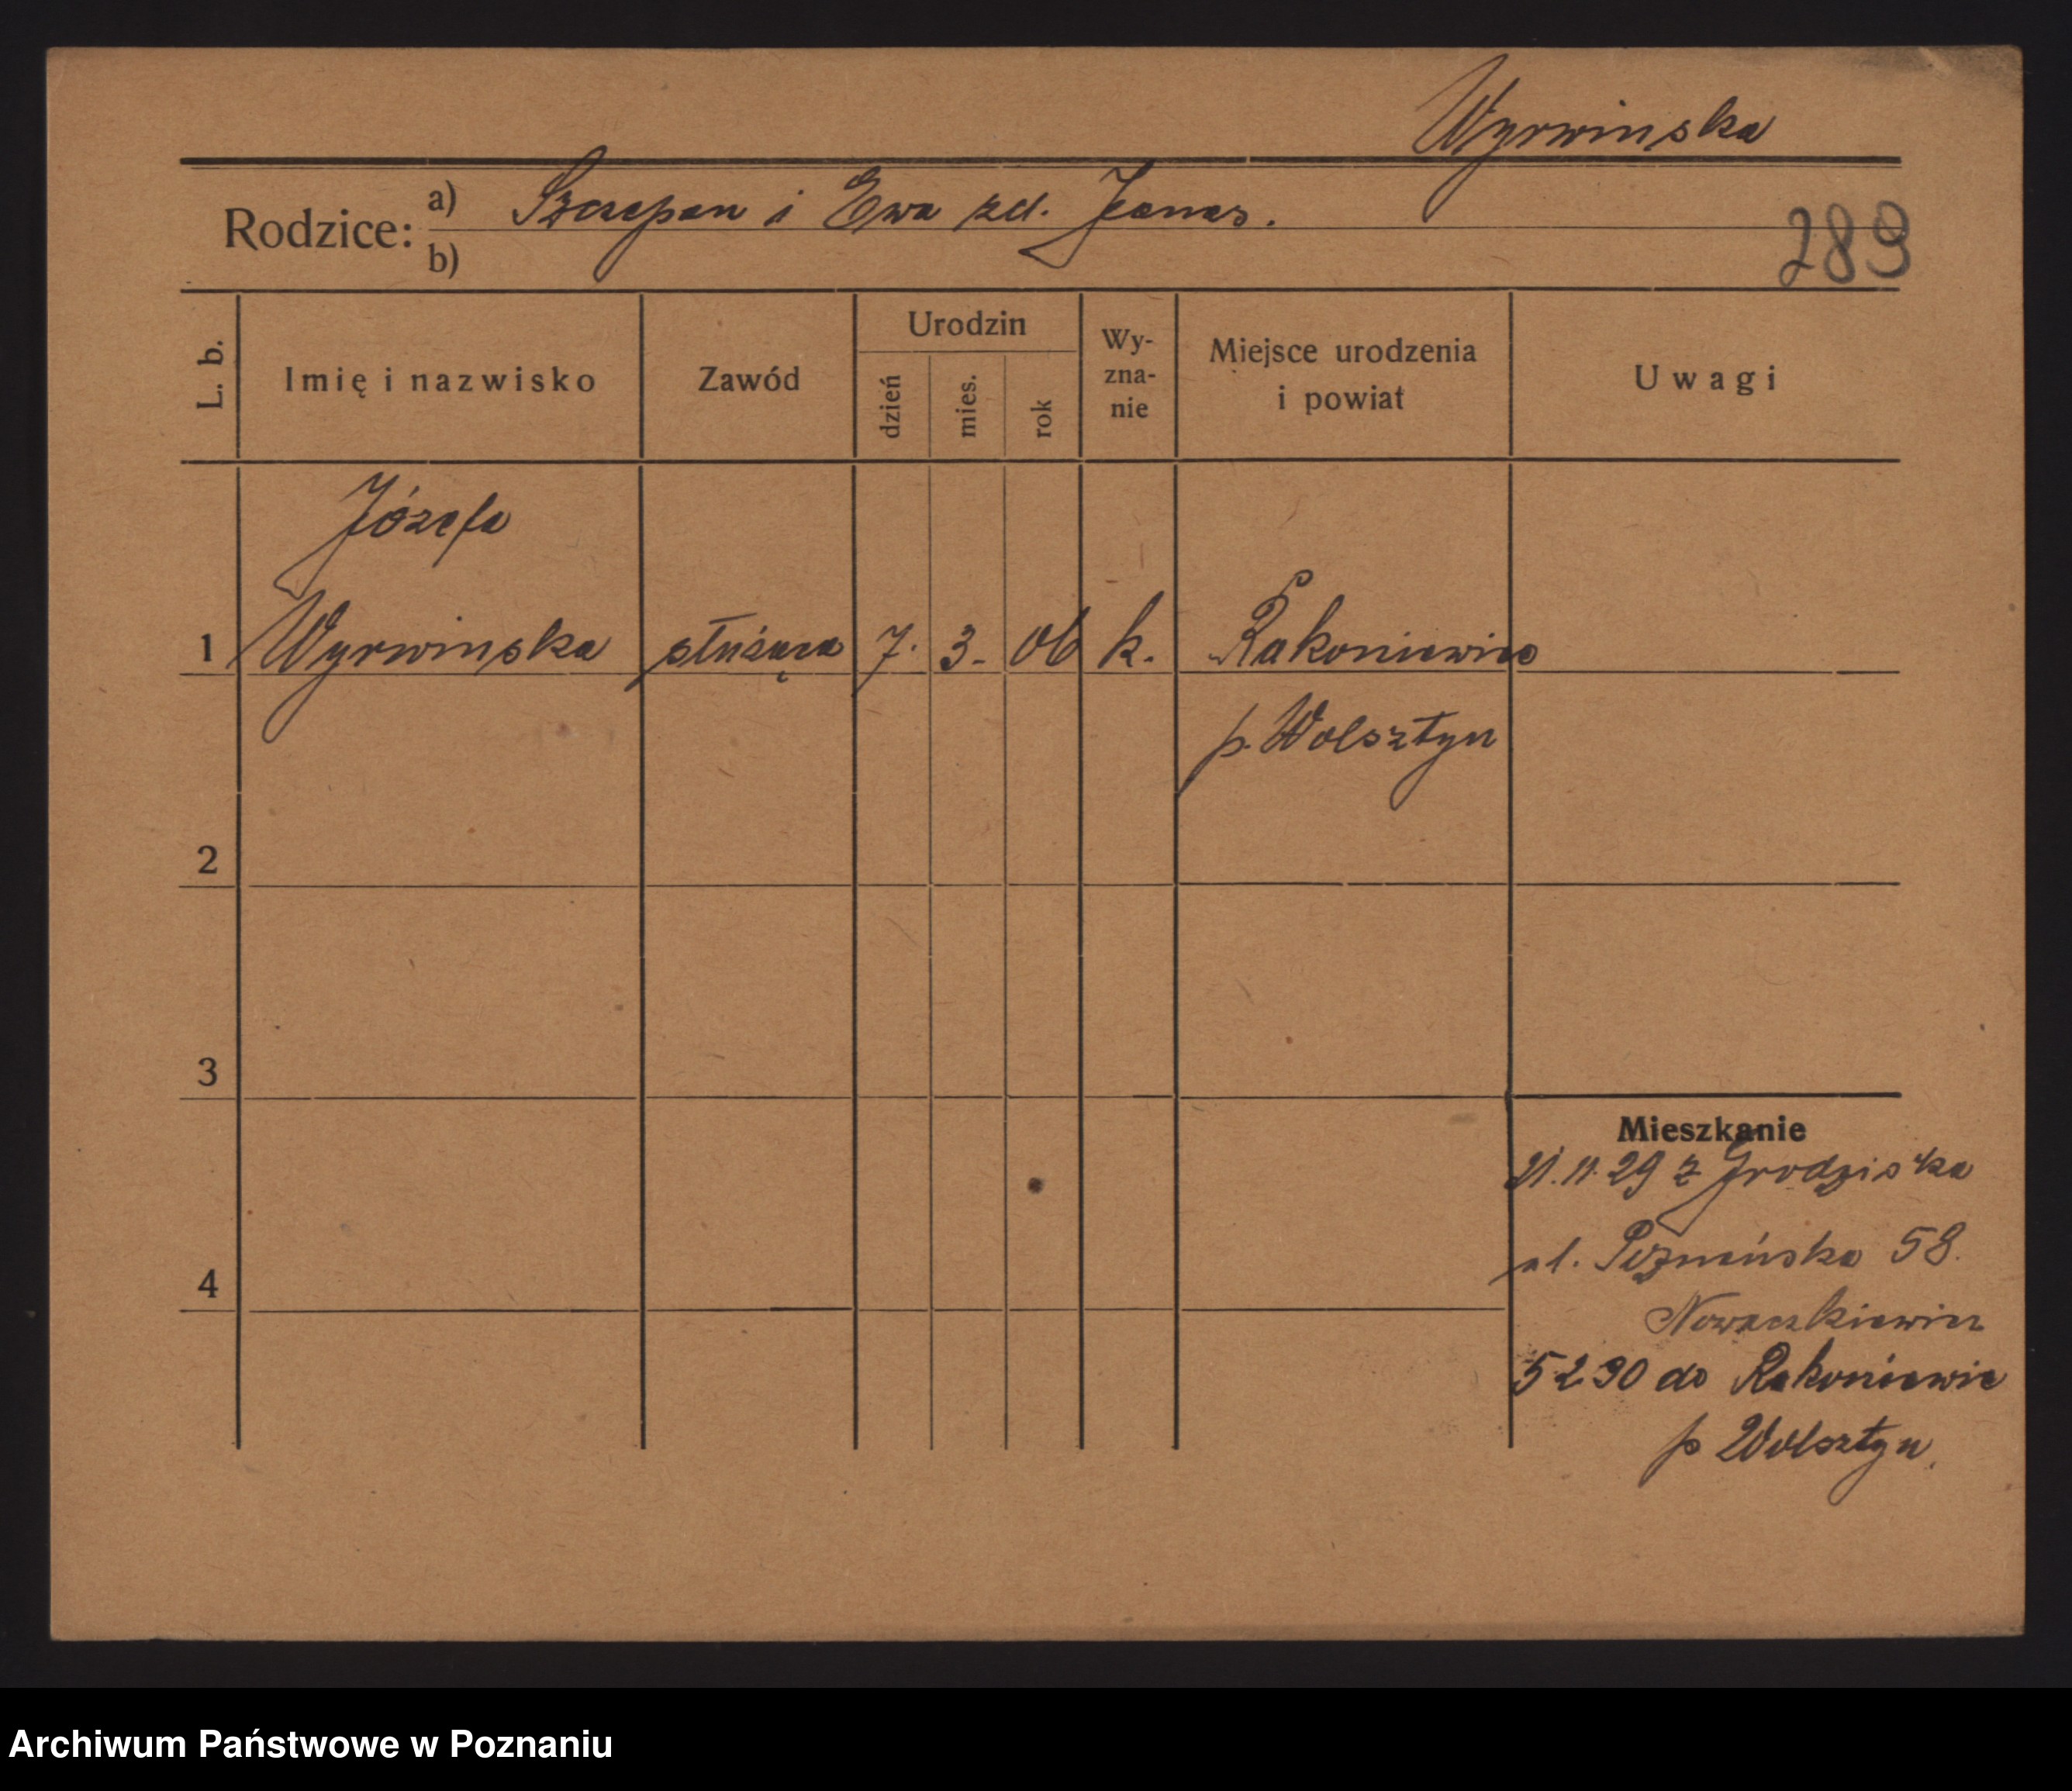 Wyrwinska
Rodzice: a) Szczepan i Ewa zd. Jonas.
b)
289
L. b. Imię i nazwisko Zawód Urodzin dzień mies. rok Wy-zna-nie Miejsce urodzenia i powiat Uwagi
Józefa
1 Wyrwinska służąca 7. 3. 06 k. Rakoniewice
p. Wolsztyn
2
3
Mieszkanie
21.11.29 z Grodziska
ul. Poznańska 58.
4
Nowaczkiewicz
5 2 30 do Rakoniewic
p Wolsztyn.
Archiwum Państwowe w Poznaniu